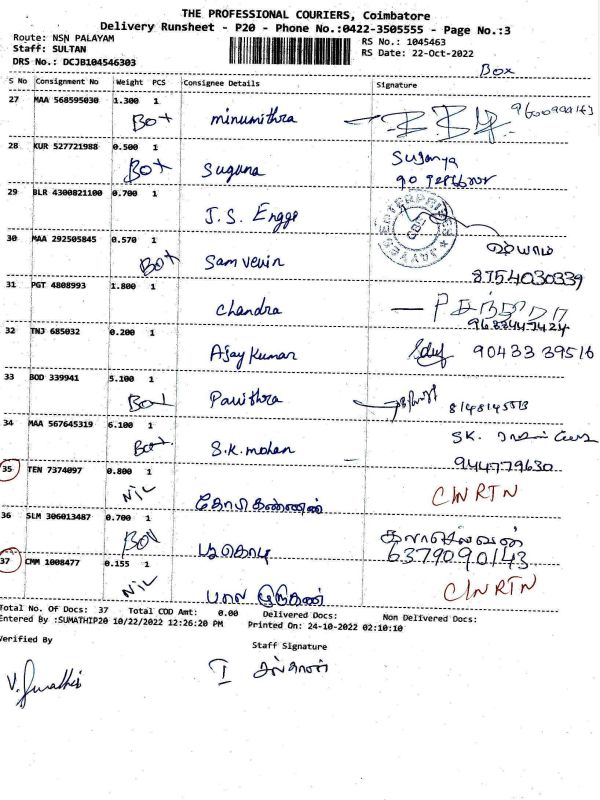 THE PROFESSIONAL COURIERS, Coimbatore
Delivery Runsheet - P20 - Phone No.:0422-3505555 - Page No.:3
Route: NSN PALAYAM
RS No.: 1045463
Staff: SULTAN
RS Date: 22-Oct-2022
DRS No.: DCJB104546303
Box
S No Consignment No Weight PCS Consignee Details Signature
27 MAA 568595030 1.300 1
Box minumithra
28 KUR 527721988 0.500 1 Suganya
Box Suguna
29 BLR 4300821100 0.700 1
J.S. Engge
JAYVEE ENTERPRISES
30 MAA 292505845 0.570 1
Box Sam vevin
8754030339
31 PGT 4808993 1.800 1
Chandra
32 TNJ 685032 0.200 1
Ajay Kumar 90433 39516
33 BOD 339941 5.100 1
Box Pavithra
34 MAA 567645319 6.100 1 SK.
Box S.K. mohan
944779630
35 TEN 7374097 0.800 1 C/N RTN
NIL கோபிகண்ணன்
36 SLM 306013487 0.700 1 கலாசெல்வன்
Box பூகொடி 6379090143
37 CMM 1008477 0.155 1 C/N RTN
NIL பால முருகன்
Total No. Of Docs: 37 Total COD Amt: 0.00 Delivered Docs: Non Delivered Docs:
Entered By :SUMATHIP20 10/22/2022 12:26:20 PM Printed On: 24-10-2022 02:10:10
Verified By Staff Signature
V. Sumathi சுல்தான்